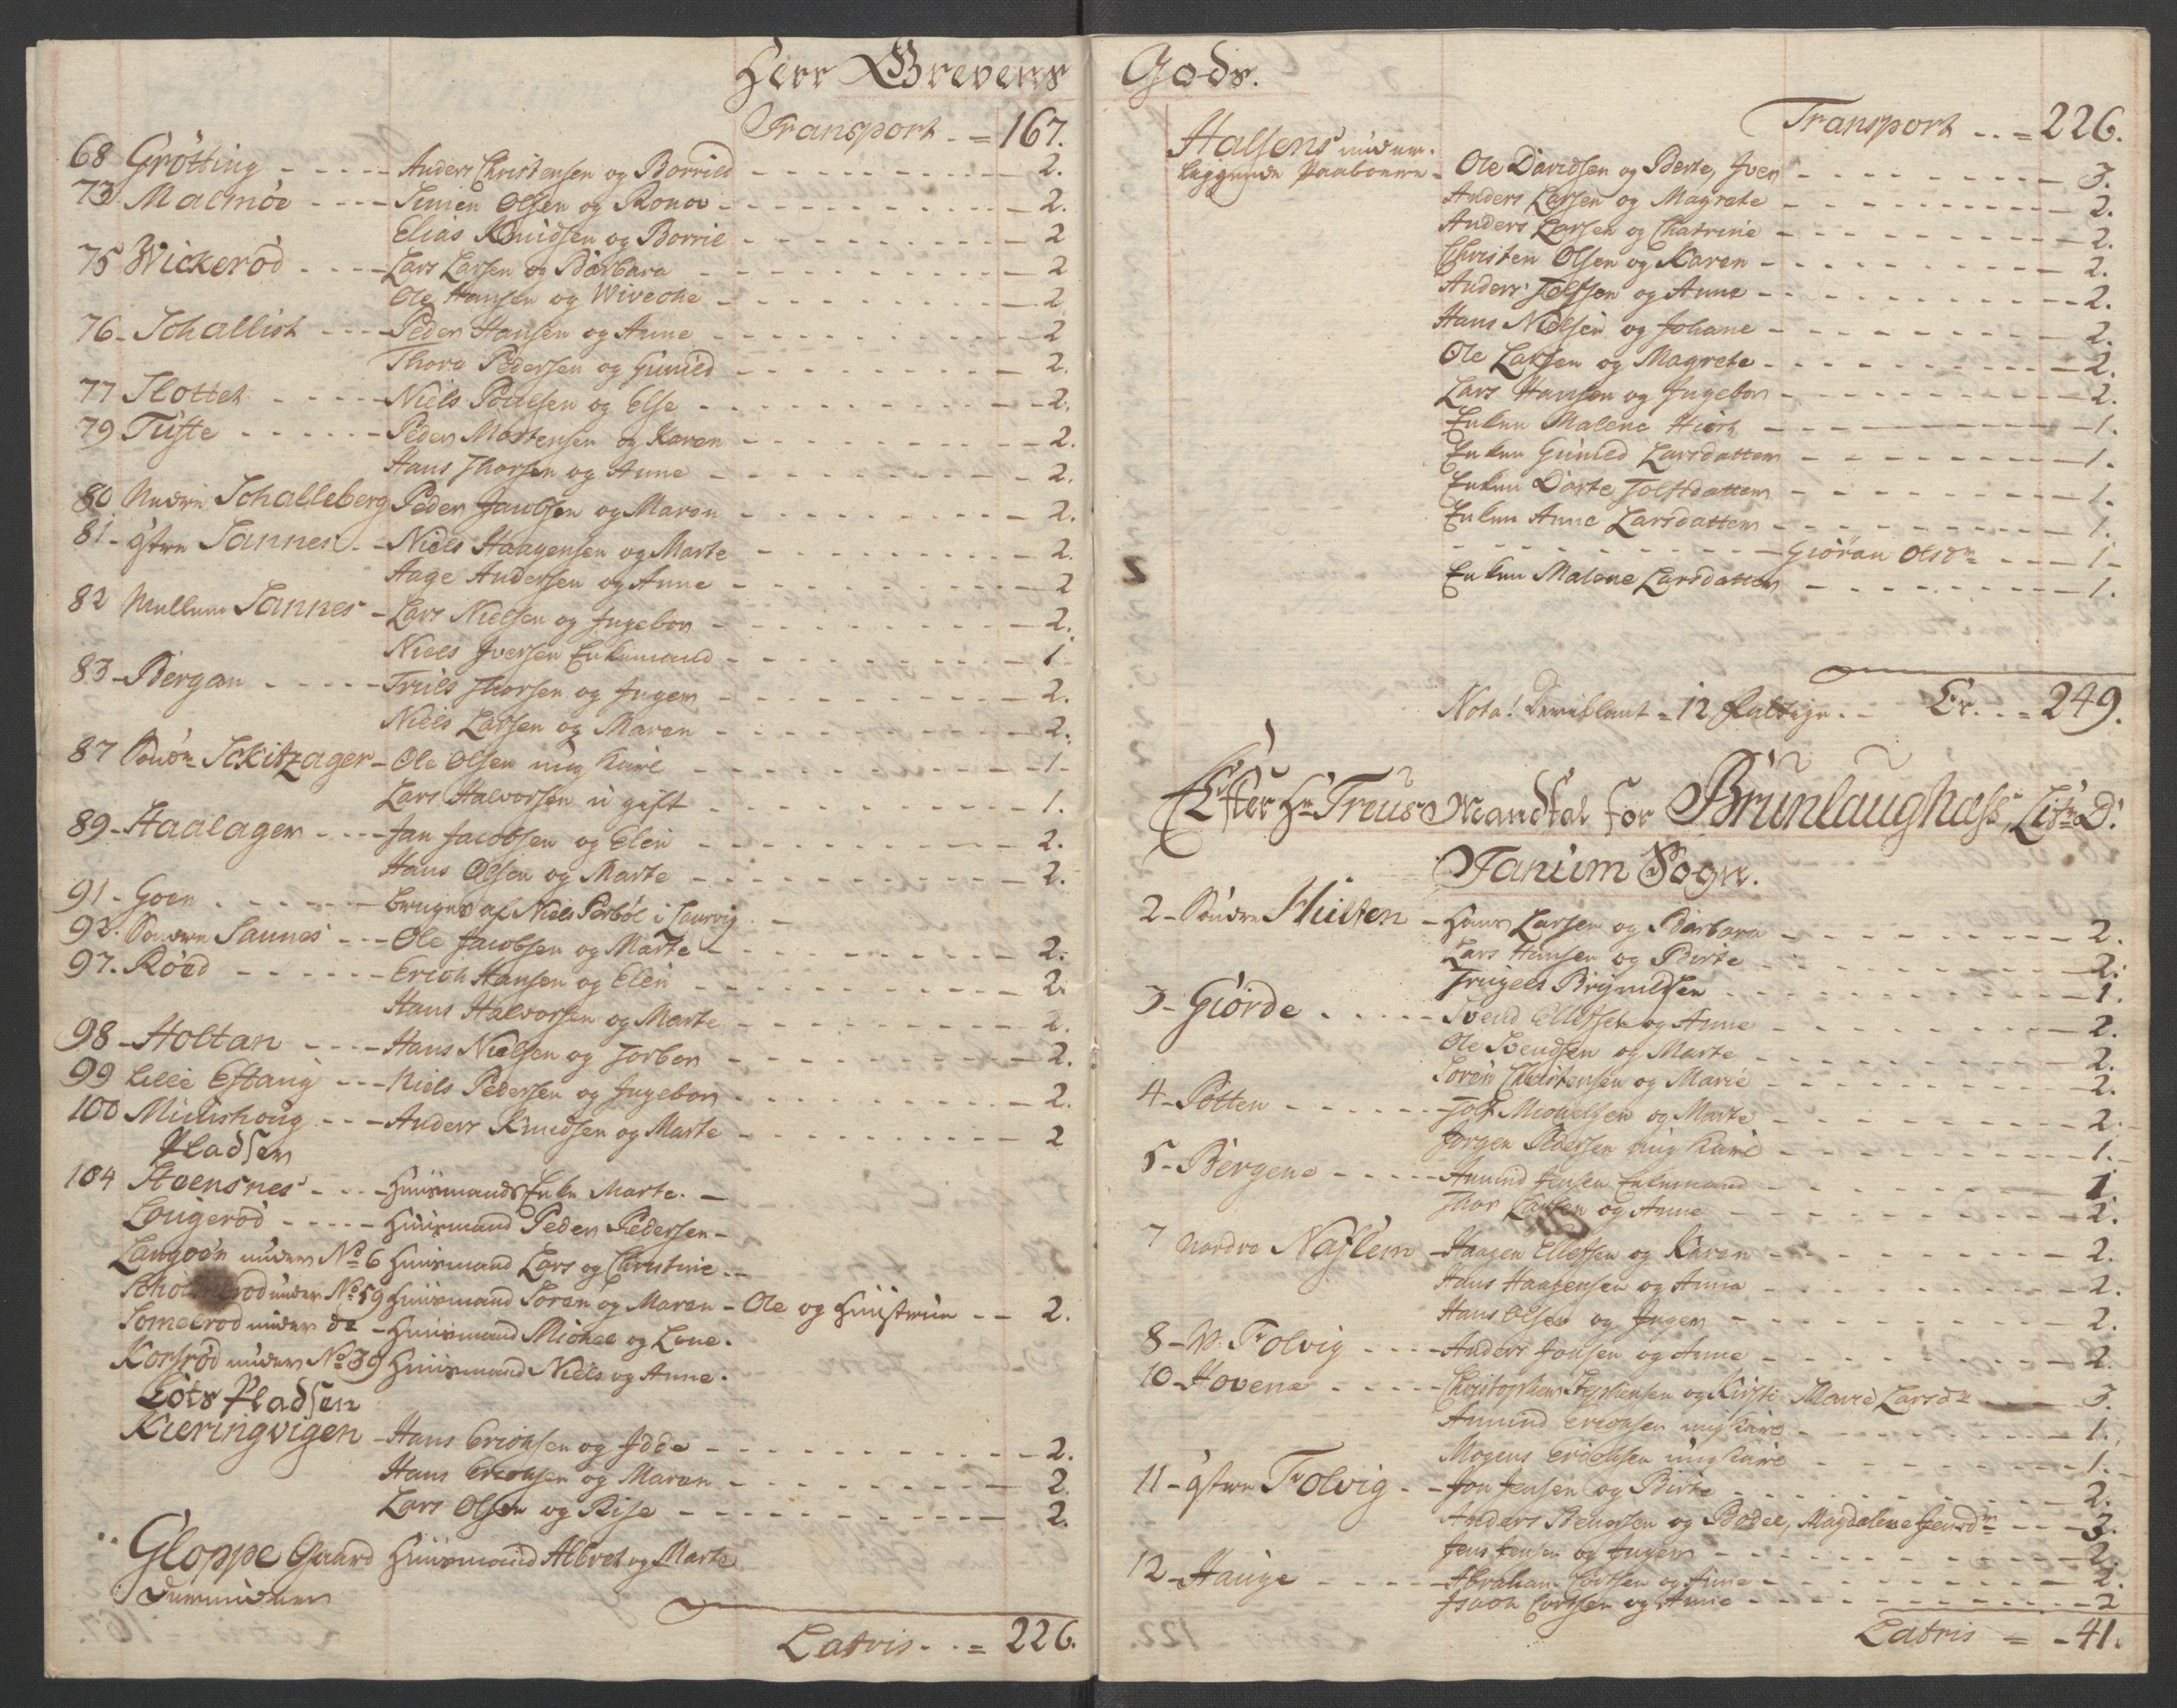 Herr Grevens
Transport - = 167.
68 Grötting - - - - - Anders Christensen og Borrild - - - 2.
73. Malmöe - - - - Simen Olsen og Ronov - - - 2.
Elias Knudsen og Borril - - - 2
75 Wickeröd - - - - Lars Larsen og Barbara - - - 2
Ole Hansen og Wiveche - - - 2
76 - Schallist - - - - Peder Hansen og Anne - - - 2
Thore Pedersen og Gunild - - - 2.
77 Slottet - - - - Niels Poulsen og Else - - - 2.
79 Tufte - - - - Peder Mortensen og Karen - - - 2.
Hans Thorsen og Anne - - - 2.
80 Nedre Schalleberg Peder Jacobsen og Maren - - - 2.
81 - östre Sannes - - Niels Haagensen og Marte - - - 2.
Aage Andersen og Anne - - - 2
82 Mellem Sannes - Lars Nielsen og Ingebor - - - 2.
Niels Iversen Enkemand - - - 1
83 - Bergan - - - - Truls Thorsen og Inger - - - 2.
Niels Larsen og Maren - - - 2.
87 Söndr Schitzager - Ole Olsen ung Karl - - - 1 -
Lars Halvorsen u gift - - - 1.
89 - Haalager - - - - Jan Jacobsen og Elen - - - 2.
Hans Olsen og Marte - - - 2.
91 - Goen - - - - bruges af Niels Sörböl i Laurvig - -
92. Söndre Sannes - - - Ole Jacobsen og Marte - - - 2.
97. Röed - - - - Erich Hansen og Elen - - - 2.
Hans Halvorsen og Marte - - - 2.
98 - Holtan - - - - Hans Nielsen og Torbor - - - 2.
99 Lille Eftang - - - Niels Pedersen og Ingebor - - - 2.
100 Miluishoug - - - Anders Knudsen og Marte - - - 2
Pladser
104 Steensnes - - - Huusmands Enke Marte. -
Lougeröd - - - - Huusmand Peder Pedersen -
Langöen under No 6 Huusmand Lars og Christine - -
under No 59 Huusmand Soren og Maren - Ole og Huustrue - - 2.
Somelröd under do - Huusmand Michel og Lene.
Korsröd under No 39 Huusmand Niels og Anne.
Lots Pladser
Kieringvigen - Hans Erichsen og Idde - - - 2.
Hans Erichsen og Maren - - - 2.
Lars Olsen og Rise - - - 2.
Gloppe Gaard Huusmand Albret og Marte
Latris - - = 226.
Gods.
Transport - - = 226.
Halsens under-
liggende Paaboere - Ole Davidsen og Berte, Iver - - - 3.
Anders Larsen og Magrete - - - 2.
Anders Larsen og Chatrine - - - 2.
Christen Olsen og Karen - - - 2.
Anders Tolfsen og Anne - - - 2.
Hans Nielsen og Johane - - - 2.
Ole Larsen og Magrete - - - 2.
Lars Hansen og Ingebor - - - 2.
Enken Malene Hiort - - - 1.
Enken Gunild Larsdatter - - - 1.
Enken Dorte Tolfsdatter - - - 1.
Enken Anne Larsdatter - - - 1.
- - - Giöran Olsdr - - - 1 -
Enken Malene Larsdatter - - - 1.
Nota! Deriblant = 12 Fattige. - Er - - = 249.
Efter Hr Treus Mandtal for Brunlaughafs, Litr D:
Tanum Sogn.
2 - Söndre Hulten - Hans Larsen og Barbara - - - 2.
Lars Hansen og Birte - - - 2.
Trugels Brynildsen - - - 1.
3 - Giörde - - - - Svend Ellefsen og Anne - - - 2.
Ole Svendsen og Marte - - - 2.
Sören Christensen og Marie - - - 2.
4 - Potten - - - - Tolf Michelsen og Marte - - - 2.
Jörgen Pedersen ung Karl - - - 1.
5 - Bergene - - - - Amund Jensen Enkemand - - - 1.
Thor Larsen og Anne - - - 2.
7 Nordre Naflem - Haagen Ellefsen og Karen - - - 2.
Hans Haagensen og Anna - - - 2.
Hans Olsen og Inger - - - 2.
8 - W. Folvig - - - - Anders Jonsen og Anne - - - 2.
10 - Hovene - - - - Christopher Stephensen og Kirsti Marie Larsdr - - 3.
Amund Erichsen ung Karl - - - 1.
Mogens Erichsen ung Karl - - - 1.
11 - östre Folvig - - Jon Jensen og Birte - - - 2.
Anders Stenersen og Bodel, Magdalene Jensdr - - 3.
Jens Jensen og Inger - - - 2.
12 - Hauge - - - - Abraham Cortsen og Anne - - - 2.
Isach Cortsen og Anne - - - 2
Latris = - 41.